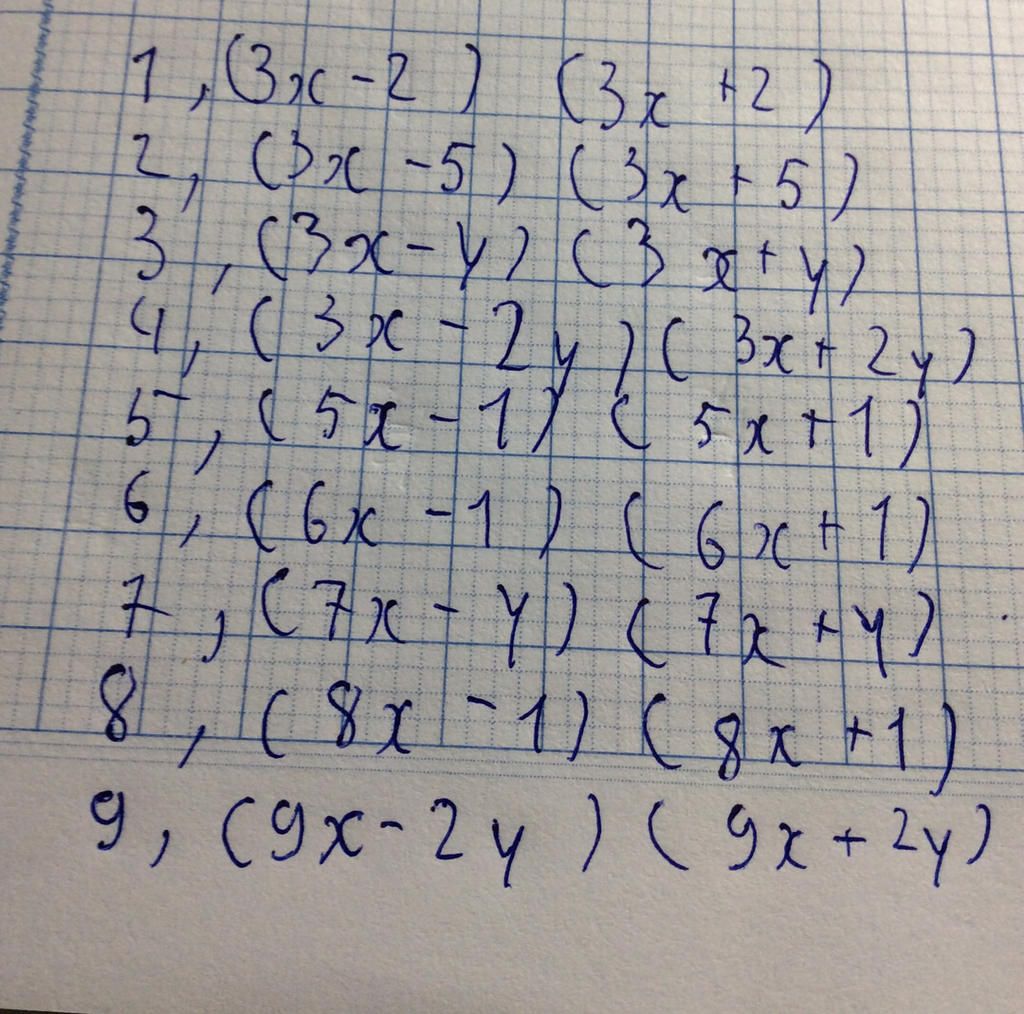 1, (3x - 2) (3x + 2)
2, (3x - 5) (3x + 5)
3, (3x - y) (3x + y)
4, (3x - 2y) (3x + 2y)
5, (5x - 1) (5x + 1)
6, (6x - 1) (6x + 1)
7, (7x - y) (7x + y)
8, (8x - 1) (8x + 1)
9, (9x - 2y) (9x + 2y)